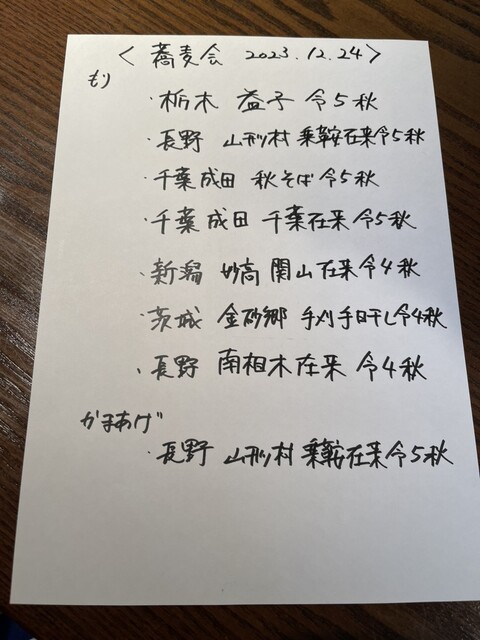 <蕎麦会 2023.12.24>
もり
・栃木 益子 令5秋
・長野 山形村 乗鞍在来令5秋
・千葉成田 秋そば 令5秋
・千葉 成田 千葉在来 令5秋
・新潟 妙高 関山在来令4秋
・茨城 金砂郷 手刈手日干し令4秋
・長野 南相木在来 令4秋
かまあげ
・長野 山形村 乗鞍在来令5秋